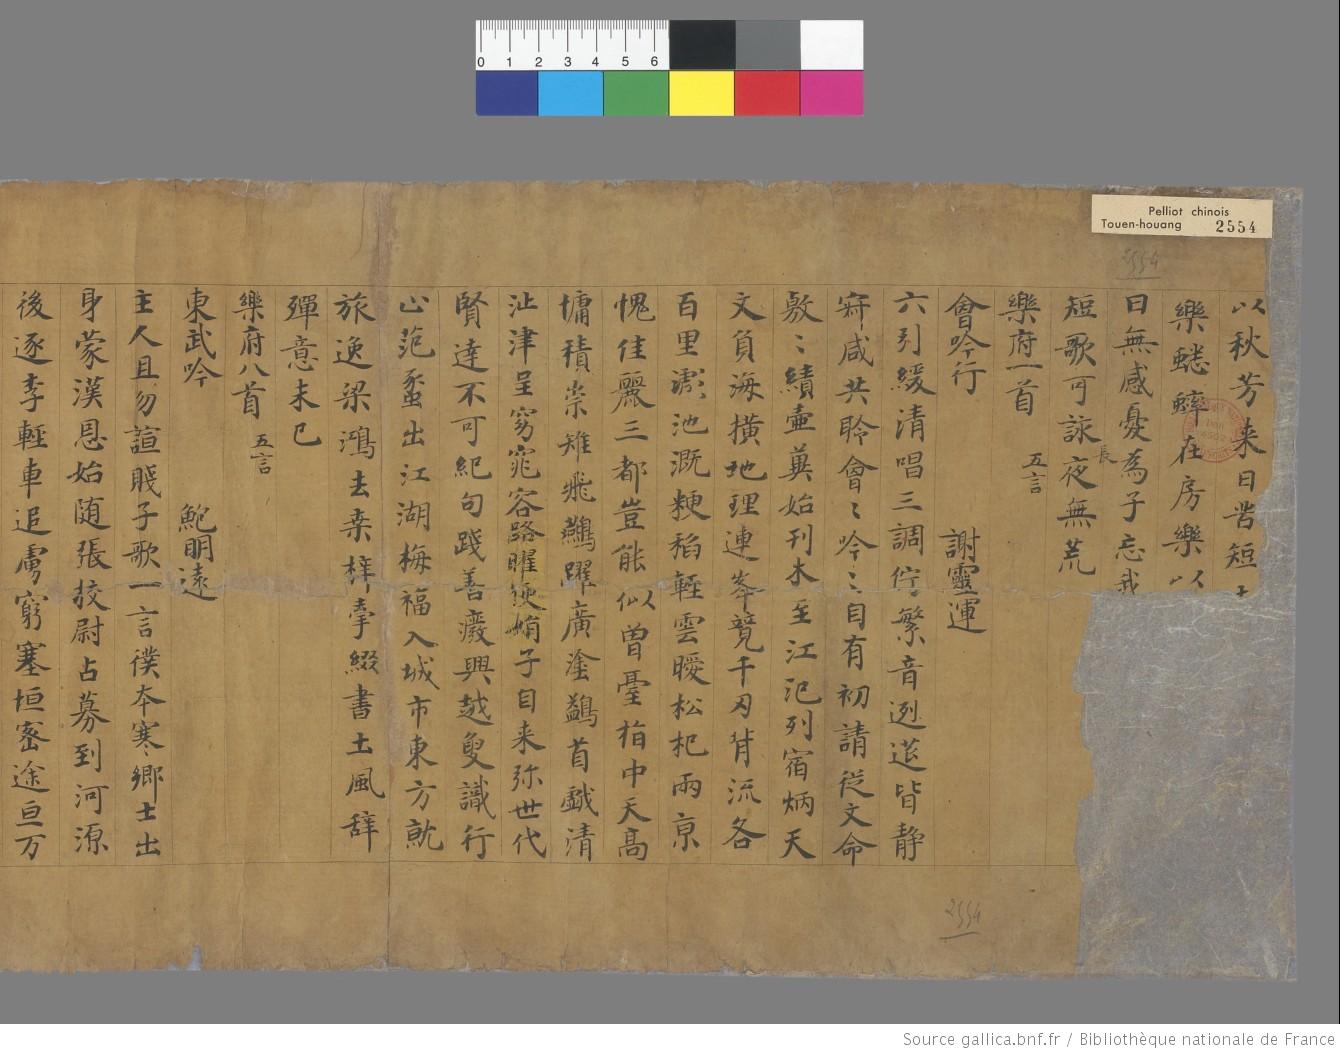 Pelliot chinois
Touen-houang 2554
2554
以秋芳来日苦短
樂蟋蟀在房樂以
日無感憂為子忘我
短歌可詠夜無荒
長
樂府一首 五言
會吟行 謝靈運
六引緩清唱三調佇繁音迾莚皆静
寂咸共聆會〻吟〻自有初請従文命
敷〻績壷冀始刊木至江汜列宿炳天
文負海横地理連峯竸千刃背流各
百里滮池溉粳稻軽雲曖松杞兩京
愧佳麗三都豈能似曽臺指中天高
墉積崇雉飛鷰躍廣塗鷁首戯清
沚津呈窈窕容路曜㛹娟子自来弥世代
賢達不可紀句踐善癈興越叟識行
止范蠡出江湖梅福入城市東方就
旅逸梁鴻去桒梓牽綴書土風辞
殫意未已
樂府八首 五言
東武吟 鮑明遠
主人且勿諠賎子歌一言僕夲寒郷士出
身蒙漢恩始随張挍尉占募到河源
後逐李軽車追虜窮塞垣宻途亘万
2554
0 1 2 3 4 5 6
Source gallica.bnf.fr / Bibliothèque nationale de France